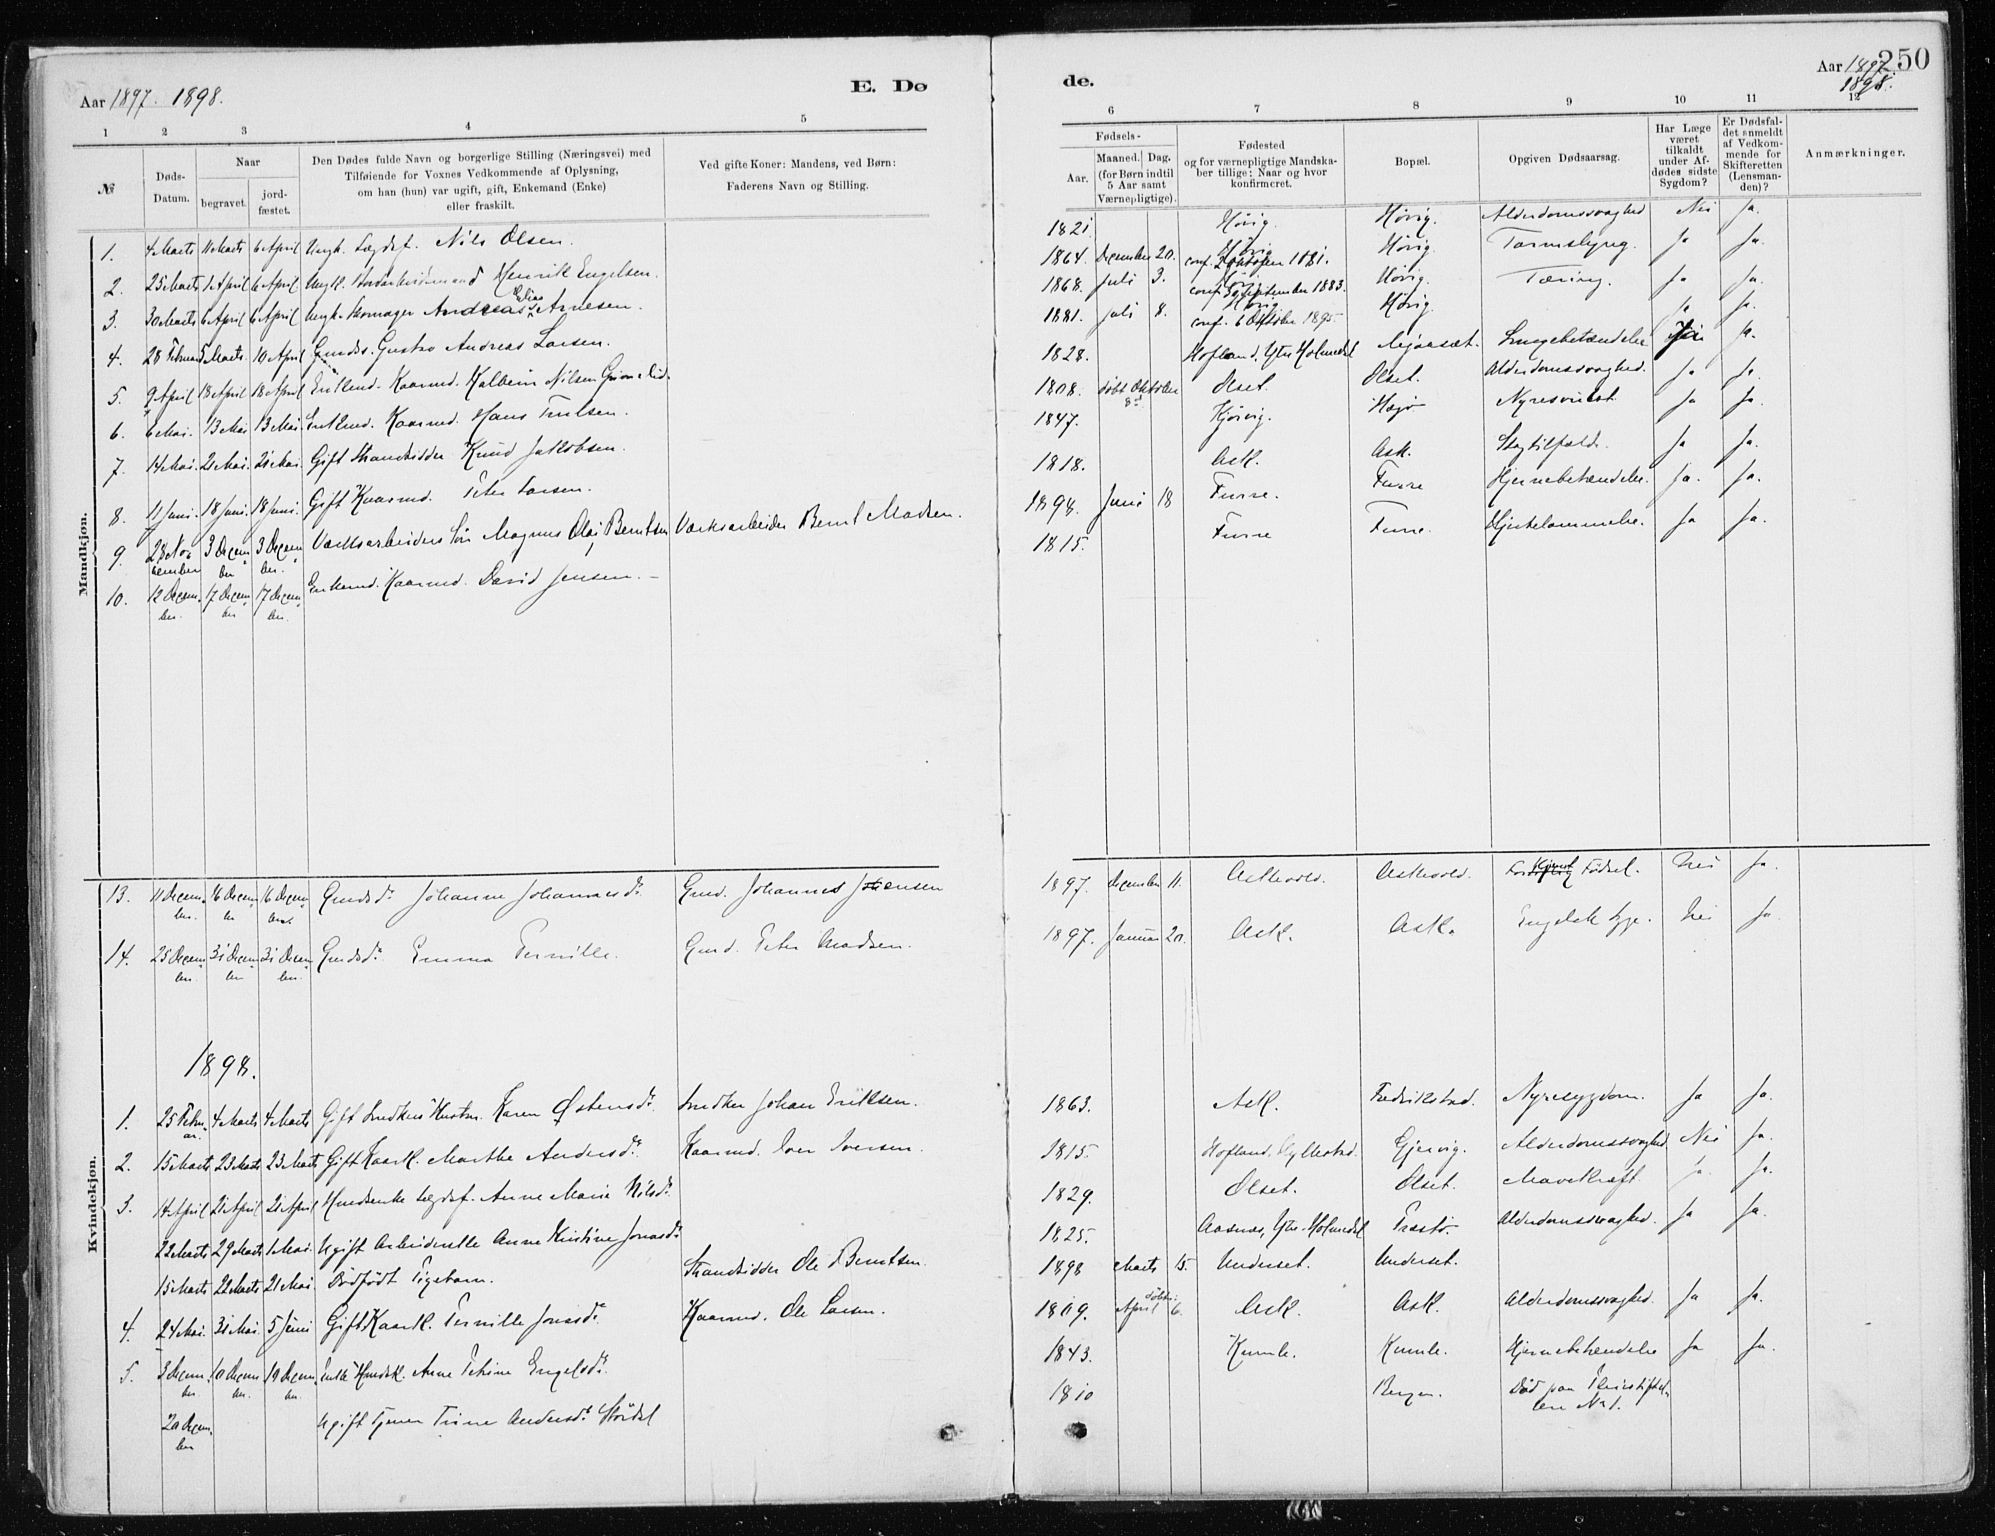 250
Aar 1897. 1898.
E. Dø
de.
Aar 1897
1898.
1 2 3 4 5
6 7 8 9 10 11 12
№
Døds-
Datum.
Naar
begravet.
jord-
fæstet.
Den Dødes fulde Navn og borgerlige Stilling (Næringsvei) med
Tilføiende for Voxnes Vedkommende af Oplysning,
om han (hun) var ugift, gift, Enkemand (Enke)
eller fraskilt.
Ved gifte Koner: Mandens, ved Børn:
Faderens Navn og Stilling.
Fødsels-
Aar.
Maaned. Dag.
(for Børn indtil
5 Aar samt
Værnepligtige).
Fødested
og for værnepligtige Mandska-
ber tillige: Naar og hvor
konfirmeret.
Bopæl.
Opgiven Dødsaarsag.
Har Læge
været
tilkaldt
under Af-
dødes sidste
Sygdom?
Er Dødsfal-
det anmeldt
af Vedkom-
mende for
Skifteretten
(Lensman-
den)?
Anmærkninger.
Mandkjøn.
1. 4 Marts 11 Marts 6 April Ungk. Lægdsl. Nils Olsen. 1821. Høvig. Høvig. Alderdomssvaghed Nei Ja.
2. 25 Marts 1 April 6 April Ungk. Henrik Engelsen. 1864. December 20. Høvig Høvig. Ja Ja.
conf. 2 Oktober 1881.
3. 30 Marts 6 April 6 April Ungk. Skomager Andreas Elias Arnesen. 1868. Juli 3. Høvig. Tæring. Ja Ja.
conf. 30 September 1883.
4. 28 Februar 5 Marts 10 April Gmdss. Gustav Andreas Larsen. 1881. Juli 8. Høvig Høvig Ja Ja.
conf. 6 Oktober 1895.
5. 9 April 18 April 18 April Enkemd. Kaarmd. Kolbein Nilsen 1828. Hofland, Ytre Holmedal Lungebetændelse Ja.
6. 6 Mai. 13 Mai 13 Mai. Enkmd. Kaarmd. Hans Trulsen. 1808. døbt Oktober 8d Olset. Olset. Alderdomssvaghed. Ja Ja.
7. 14 Mai. 21 Mai. 21 Mai. Gift Strandsidder Knud Jakobsen. 1847. Gjørvig. Ja Ja.
8. 11 Juni. 18 Juni. 18 Juni. Gift Kaarmd. Peter Larsen. 1818. Ask. Ask. Slagtilfælde. Ja Ja.
9. 28 November 3 December 3 December Værksarbeiders Søn Magnus Olai Berntsen Værksarbeider Bernt Madsen. 1894. Juni 18 Furre. Furre Hjernebetændelse. Ja. Ja.
10. 12 December. 17 December 17 December. Enkemd. Kaarmd. David Jensen. 1815. Furre Furre. Hjertelammelse. Ja Ja.
Kvindekjøn.
13. 11 December. 16 December 16 December Gmdsdr. Johanne Johannesdr. Gmd. Johannes Johensen 1897. December 11. Askevold. Askevold. Fødsel. Nei Ja.
14. 25 December. 31 December 31 December. Gmdsdr. Emma Pernille. Gmd. Peter Madsen. 1897. Januar 20. Ask. Ask. Engelsk Syge. Nei Ja.
1898.
1. 25 Februar. 4 Marts 4 Marts Gift Snedkers Hustru. Karen Østensdr. Snedker Johan Eriksen. 1863. Ask. Fredrikstad. Nyresygdom. Ja Ja.
2. 15 Marts 23 Marts 23 Marts Gift Kaark. Marthe Andersdr. Kaarmd. Iver Iversen. 1815. Hofland, Hyllestad. Gjervig. Alderdomssvaghed Nei Ja.
3. 14 April 21 April 21 April Hmdsenke Lægdsl. Anne Marie Nilsdr. 1829. Olset. Olset. Mavekræft. Ja. Ja.
22 Marts 29 Marts 1 Mai. Ugift Arbeiderske Anne Kristine Jonasdr. 1825. Aasnes, Ytre-Holmedal Alderdomssvaghed. Ja Ja.
15 Marts 22 Marts 21 Mai. Dødfødt Pigebarn. Strandsidder Ole Berntsen. 1898 Marts 15. Underset. Underset.
4. 24 Mai. 31 Mai. 5 Juni Gift Kaark. Pernille Jonasdr. Kaarmd. Ole Larsen. 1809. døbt: April 6. Ask. Ask. Alderdomssvaghed. Ja Ja.
5. 3 December 10 December. 19 December. Enke Hmdsk. Anne Petrine Engelsdr. 1843. Kumle. Kumle. Hjernebetændelse Ja Ja.
20 December Ugift Tjener Trine Andersdr. Stordal 1810 Bergen. Død paa Pleiestiftel-
sen No 1.